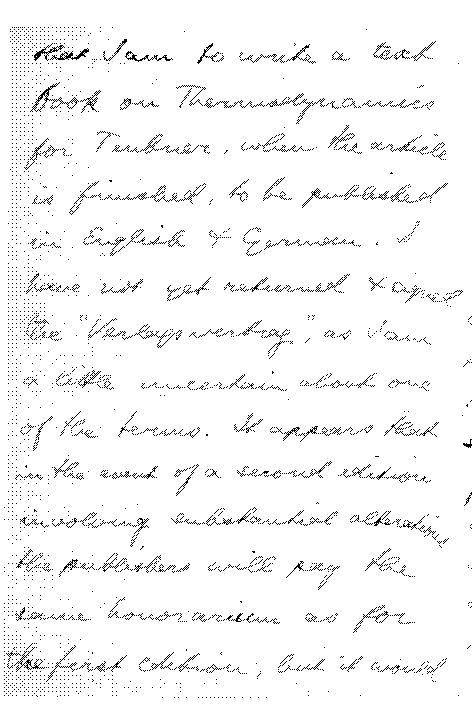 that I am to write a text
book on Thermodynamics
for Teubner, when the article
is finished, to be published
in English & German. I
have not yet returned & signed
the "Verlagsvertrag", as I am
a little uncertain about one
of the terms. It appears that
in the event of a second edition
involving substantial alterations
the publishers will pay the
same honorarium as for
the first edition, but it would